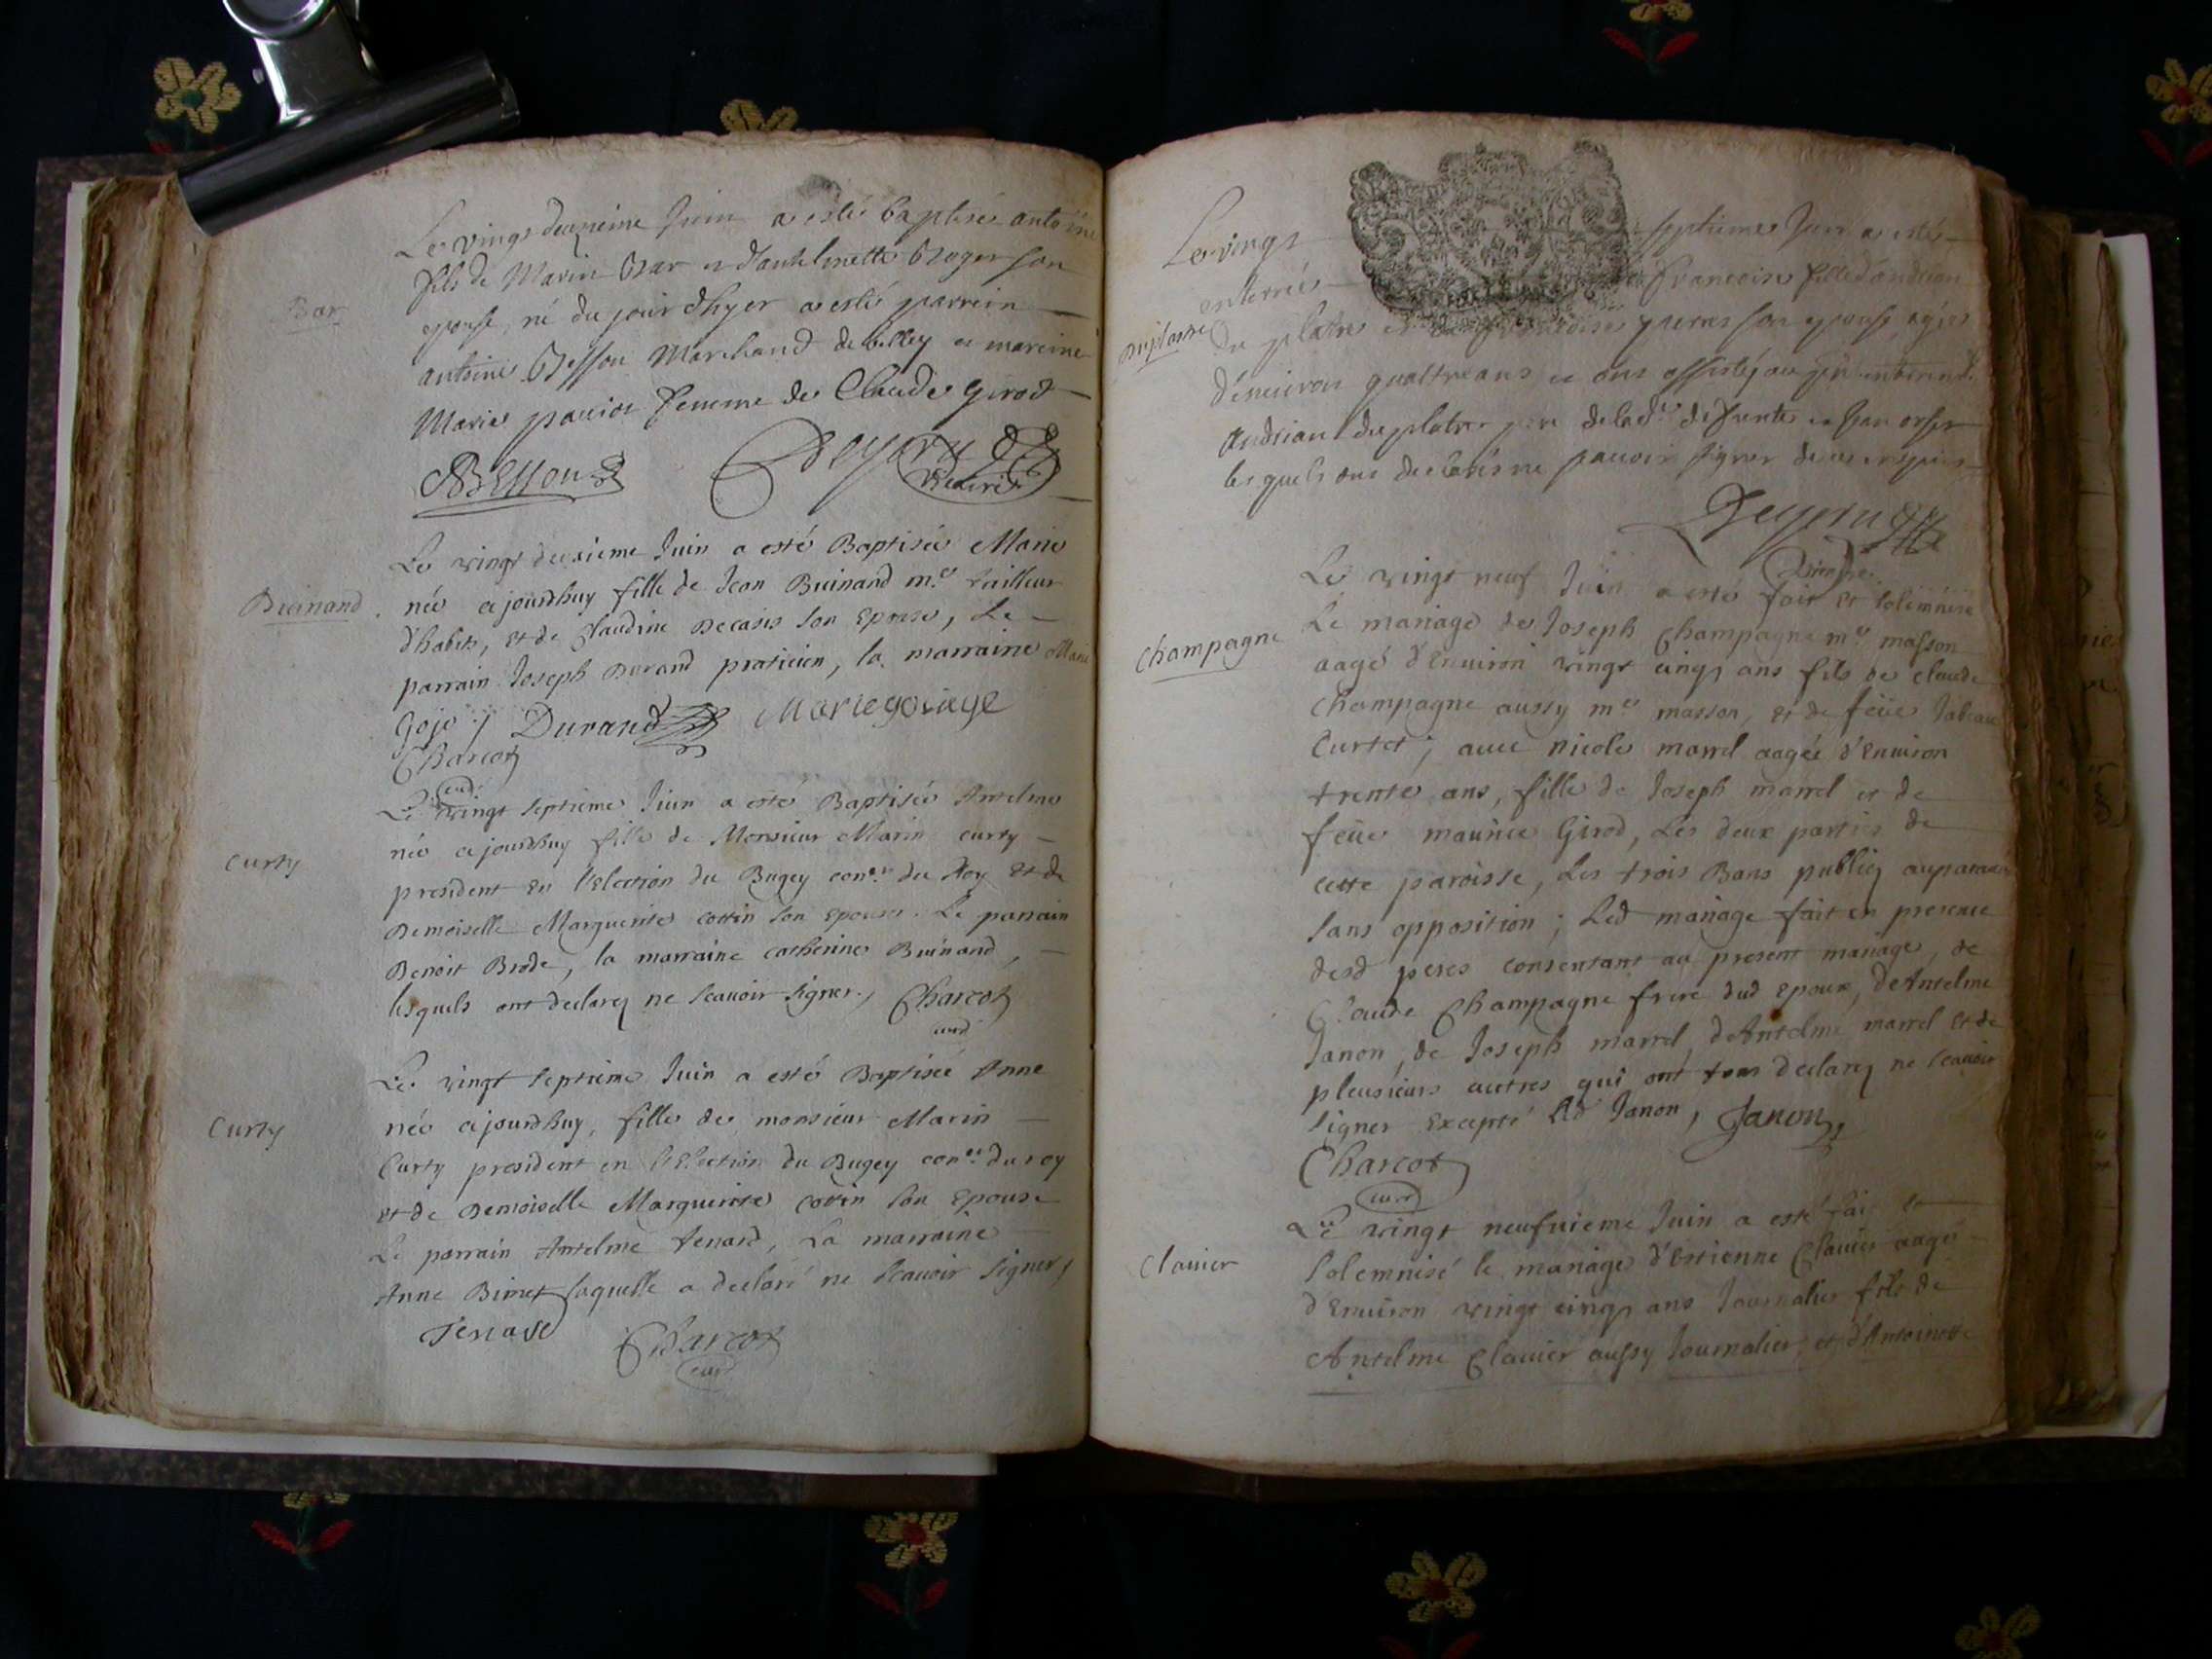 Le vingt deuxieme Juin a esté baptisé antoine
Bar
fils de Marin Bar et d'anthelmette Roger son
epouse, né du jour d'hyer a esté parrein
antoine Besson Marchand de belley et mareine
Marie pauiot femme de Claude Girod
ABesson
Vicaire
Le vingt deuxieme Juin a esté Baptisée Marie
Buinand
née ajourdhuy fille de Jean Buinand m.e tailleur
d'habits, et de Claudine Decasis son Epouse, Le
parrain Joseph Durand praticien, la marraine Marie
Goje / Durand Marie goiege
Charcot
curé
Le vingt septieme Juin a esté Baptisée Antelme
Curty
née ajourdhuy fille de Monsieur Marin curty
president en l'Election du Bugey con.er du Roy et de
Demoiselle Marguerite cottin son Epouse. Le parrain
Benoit Brode, la marraine catherine Buinand,
lesquels ont declarez ne scauoir signer, Charcot
curé
Le vingt septieme Juin a esté Baptisée Anne
Curty
née ajourdhuy, fille de monsieur Marin
Curty president en l'Election du Bugey con.er du roy
et de Demoiselle Marguerite cottin son Epouse
Le parrain Antelme tenard, La marraine
Anne Binet laquelle a declaré ne scauoir signer,
Tenard Charcot
curé
Le vingt septieme Juin a esté
enterrée francoise fille d'andrian
Duplatre
du platre et de son epouse, agée
d'enuiron quattre ans et ont assistéz au
Andrian du platre pere de lad.e defunte et
lesquels ont declarés ne pauoir signer de ce enquis
Vicaire
Le vingt neuf Juin a esté fait et solemnisé
Champagne
Le mariage de Joseph Champagne m.e masson
aagé d'Enuiron vingt cinq ans fils de claude
Champagne aussy m.e masson, et de feüe Isabeau
Curtet; auec nicole marrel aagée d'Enuiron
trente ans, fille de Joseph marrel et de
feüe maurice Girod, Les deux parties de
cette paroisse, Les trois Bans publiez auparauant
sans opposition; Led mariage fait en presence
desd peres consentant au present mariage, de
Claude Champagne frere dud Epoux, d'Antelme
Janon, de Joseph marrel, d'Antelme marrel et de
pleusieurs autres qui ont tous declarez ne scauoir
signer Excepté led Janon, Janon
Charcot
curé
Le vingt neufuieme Juin a esté fait et
Clauier
solemnisé le mariage d'Estienne Clauier aagé
d'Enuiron vingt cinq ans Journalier fils de
Antelme Clauier aussy Journalier, et d'Antoinette